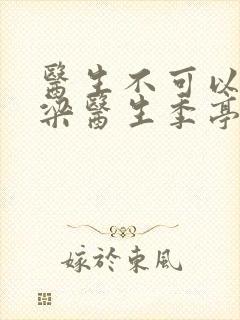 醫生不可以
梁醫生季亭
嫁於東風